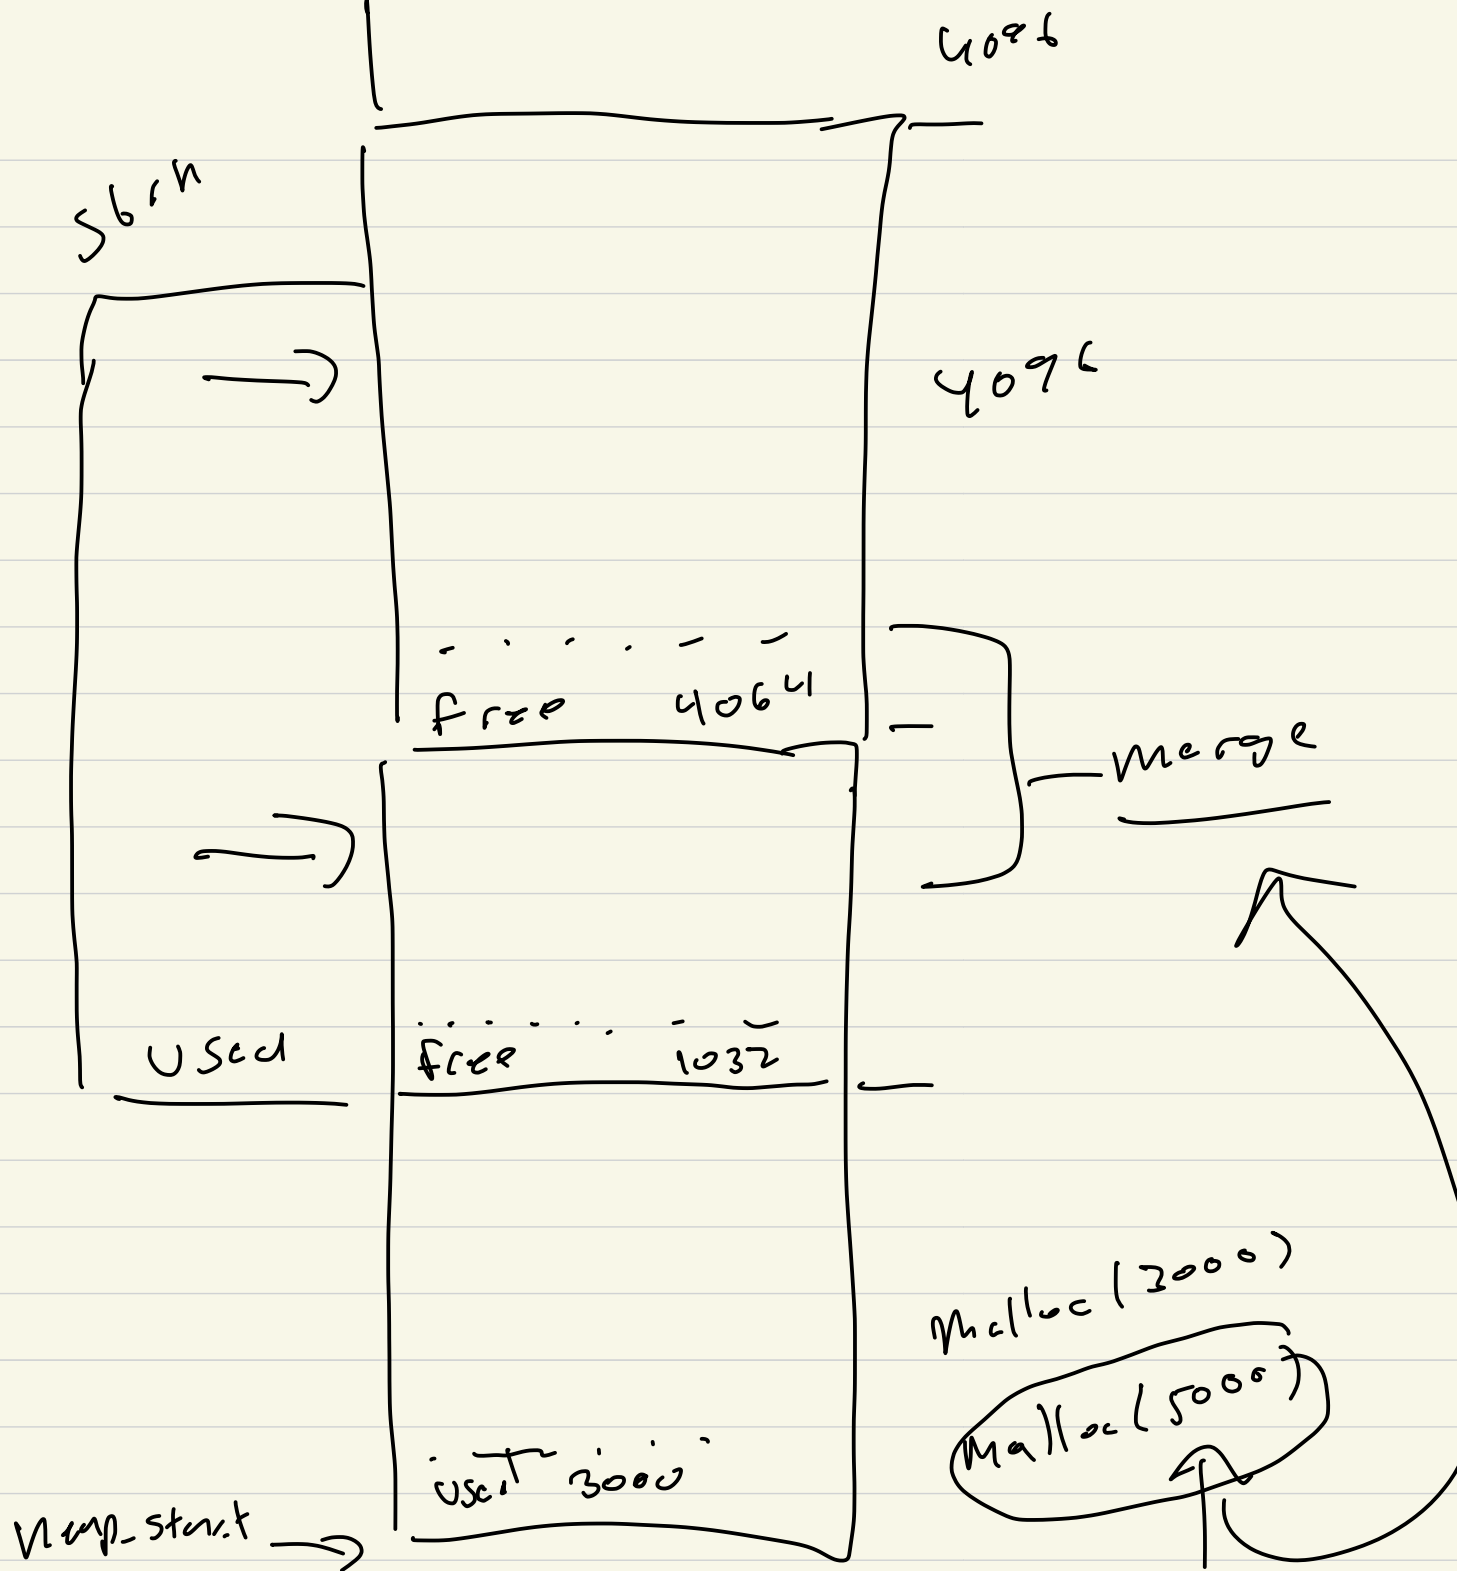 4096
sbrk
4096
free 4064
merge
used
free 1032
malloc(3000)
malloc(5000)
used 3000
heap_start